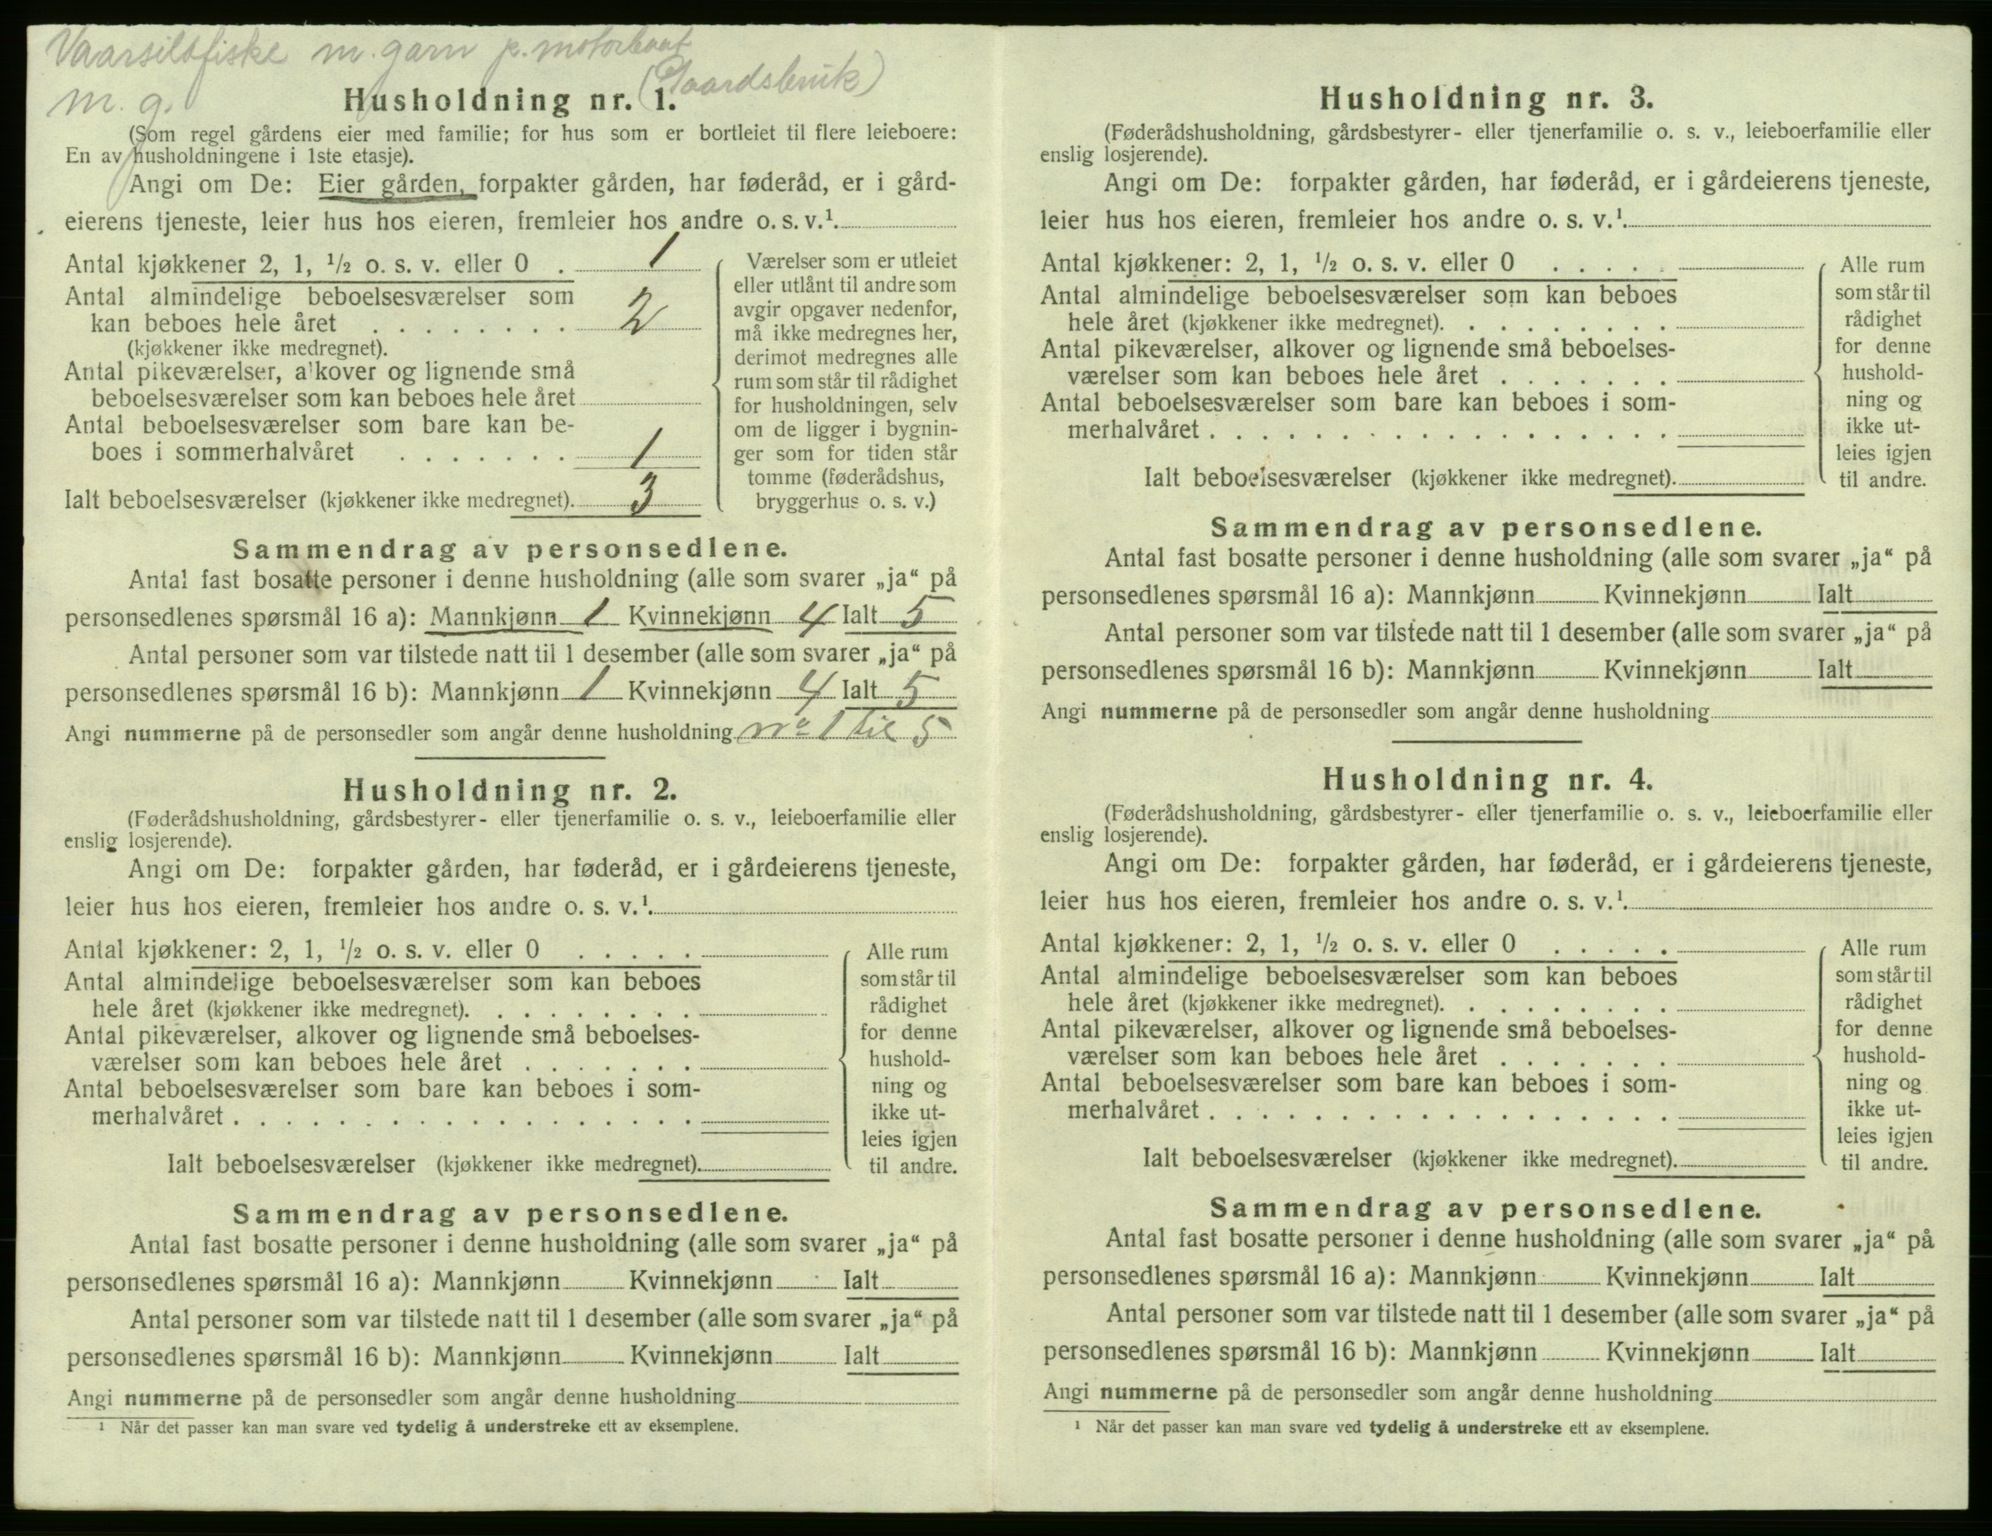 Vaarsildfiske m. garn p. motorbaat
m. g. (Gaardsbruk)
Husholdning nr. 1.
(Som regel gårdens eier med familie; for hus som er bortleiet til flere leieboere:
En av husholdningene i 1ste etasje).
Angi om De: Eier gården, forpakter gården, har føderåd, er i gård-
eierens tjeneste, leier hus hos eieren, fremleier hos andre o. s. v.¹
Antal kjøkkener 2, 1, ½ o. s. v. eller 0 . 1
Antal almindelige beboelsesværelser som
kan beboes hele året . . . . . . . . 2
(kjøkkener ikke medregnet).
Antal pikeværelser, alkover og lignende små
beboelsesværelser som kan beboes hele året
Antal beboelsesværelser som bare kan be-
boes i sommerhalvåret . . . . . . . 1
Ialt beboelsesværelser (kjøkkener ikke medregnet). 3
Værelser som er utleiet
eller utlånt til andre som
avgir opgaver nedenfor,
må ikke medregnes her,
derimot medregnes alle
rum som står til rådighet
for husholdningen, selv
om de ligger i bygnin-
ger som for tiden står
tomme (føderådshus,
bryggerhus o. s. v.)
Sammendrag av personsedlene.
Antal fast bosatte personer i denne husholdning (alle som svarer „ja“ på
personsedlenes spørsmål 16 a): Mannkjønn 1 Kvinnekjønn 4 Ialt 5
Antal personer som var tilstede natt til 1 desember (alle som svarer „ja“ på
personsedlenes spørsmål 16 b): Mannkjønn 1 Kvinnekjønn 4 Ialt 5
Angi nummerne på de personsedler som angår denne husholdning nº 1 til 5
Husholdning nr. 2.
(Føderådshusholdning, gårdsbestyrer- eller tjenerfamilie o. s. v., leieboerfamilie eller
enslig losjerende).
Angi om De: forpakter gården, har føderåd, er i gårdeierens tjeneste,
leier hus hos eieren, fremleier hos andre o. s. v.¹
Antal kjøkkener: 2, 1, ½ o. s. v. eller 0 . . . . .
Antal almindelige beboelsesværelser som kan beboes
hele året (kjøkkener ikke medregnet). . . . . . . . .
Antal pikeværelser, alkover og lignende små beboelses-
værelser som kan beboes hele året . . . . . . .
Antal beboelsesværelser som bare kan beboes i som-
merhalvåret . . . . . . . . . . . . . . . . . .
Ialt beboelsesværelser (kjøkkener ikke medregnet).
Alle rum
som står til
rådighet
for denne
hushold-
ning og
ikke ut-
leies igjen
til andre.
Sammendrag av personsedlene.
Antal fast bosatte personer i denne husholdning (alle som svarer „ja“ på
personsedlenes spørsmål 16 a): Mannkjønn Kvinnekjønn Ialt
Antal personer som var tilstede natt til 1 desember (alle som svarer „ja“ på
personsedlenes spørsmål 16 b): Mannkjønn Kvinnekjønn Ialt
Angi nummerne på de personsedler som angår denne husholdning
¹ Når det passer kan man svare ved tydelig å understreke ett av eksemplene.
Husholdning nr. 3.
(Føderådshusholdning, gårdsbestyrer- eller tjenerfamilie o. s. v., leieboerfamilie eller
enslig losjerende).
Angi om De: forpakter gården, har føderåd, er i gårdeierens tjeneste,
leier hus hos eieren, fremleier hos andre o. s. v.¹
Antal kjøkkener: 2, 1, ½ o. s. v. eller 0 . . . . .
Antal almindelige beboelsesværelser som kan beboes
hele året (kjøkkener ikke medregnet). . . . . . . . .
Antal pikeværelser, alkover og lignende små beboelses-
værelser som kan beboes hele året . . . . . . .
Antal beboelsesværelser som bare kan beboes i som-
merhalvåret . . . . . . . . . . . . . . . . . .
Ialt beboelsesværelser (kjøkkener ikke medregnet).
Alle rum
som står til
rådighet
for denne
hushold-
ning og
ikke ut-
leies igjen
til andre.
Sammendrag av personsedlene.
Antal fast bosatte personer i denne husholdning (alle som svarer „ja“ på
personsedlenes spørsmål 16 a): Mannkjønn Kvinnekjønn Ialt
Antal personer som var tilstede natt til 1 desember (alle som svarer „ja“ på
personsedlenes spørsmål 16 b): Mannkjønn Kvinnekjønn Ialt
Angi nummerne på de personsedler som angår denne husholdning
Husholdning nr. 4.
(Føderådshusholdning, gårdsbestyrer- eller tjenerfamilie o. s. v., leieboerfamilie eller
enslig losjerende).
Angi om De: forpakter gården, har føderåd, er i gårdeierens tjeneste,
leier hus hos eieren, fremleier hos andre o. s. v.¹
Antal kjøkkener: 2, 1, ½ o. s. v. eller 0 . . . . .
Antal almindelige beboelsesværelser som kan beboes
hele året (kjøkkener ikke medregnet). . . . . . . . .
Antal pikeværelser, alkover og lignende små beboelses-
værelser som kan beboes hele året . . . . . . .
Antal beboelsesværelser som bare kan beboes i som-
merhalvåret . . . . . . . . . . . . . . . . . .
Ialt beboelsesværelser (kjøkkener ikke medregnet).
Alle rum
som står til
rådighet
for denne
hushold-
ning og
ikke ut-
leies igjen
til andre.
Sammendrag av personsedlene.
Antal fast bosatte personer i denne husholdning (alle som svarer „ja“ på
personsedlenes spørsmål 16 a): Mannkjønn Kvinnekjønn Ialt
Antal personer som var tilstede natt til 1 desember (alle som svarer „ja“ på
personsedlenes spørsmål 16 b): Mannkjønn Kvinnekjønn Ialt
Angi nummerne på de personsedler som angår denne husholdning
¹ Når det passer kan man svare ved tydelig å understreke ett av eksemplene.